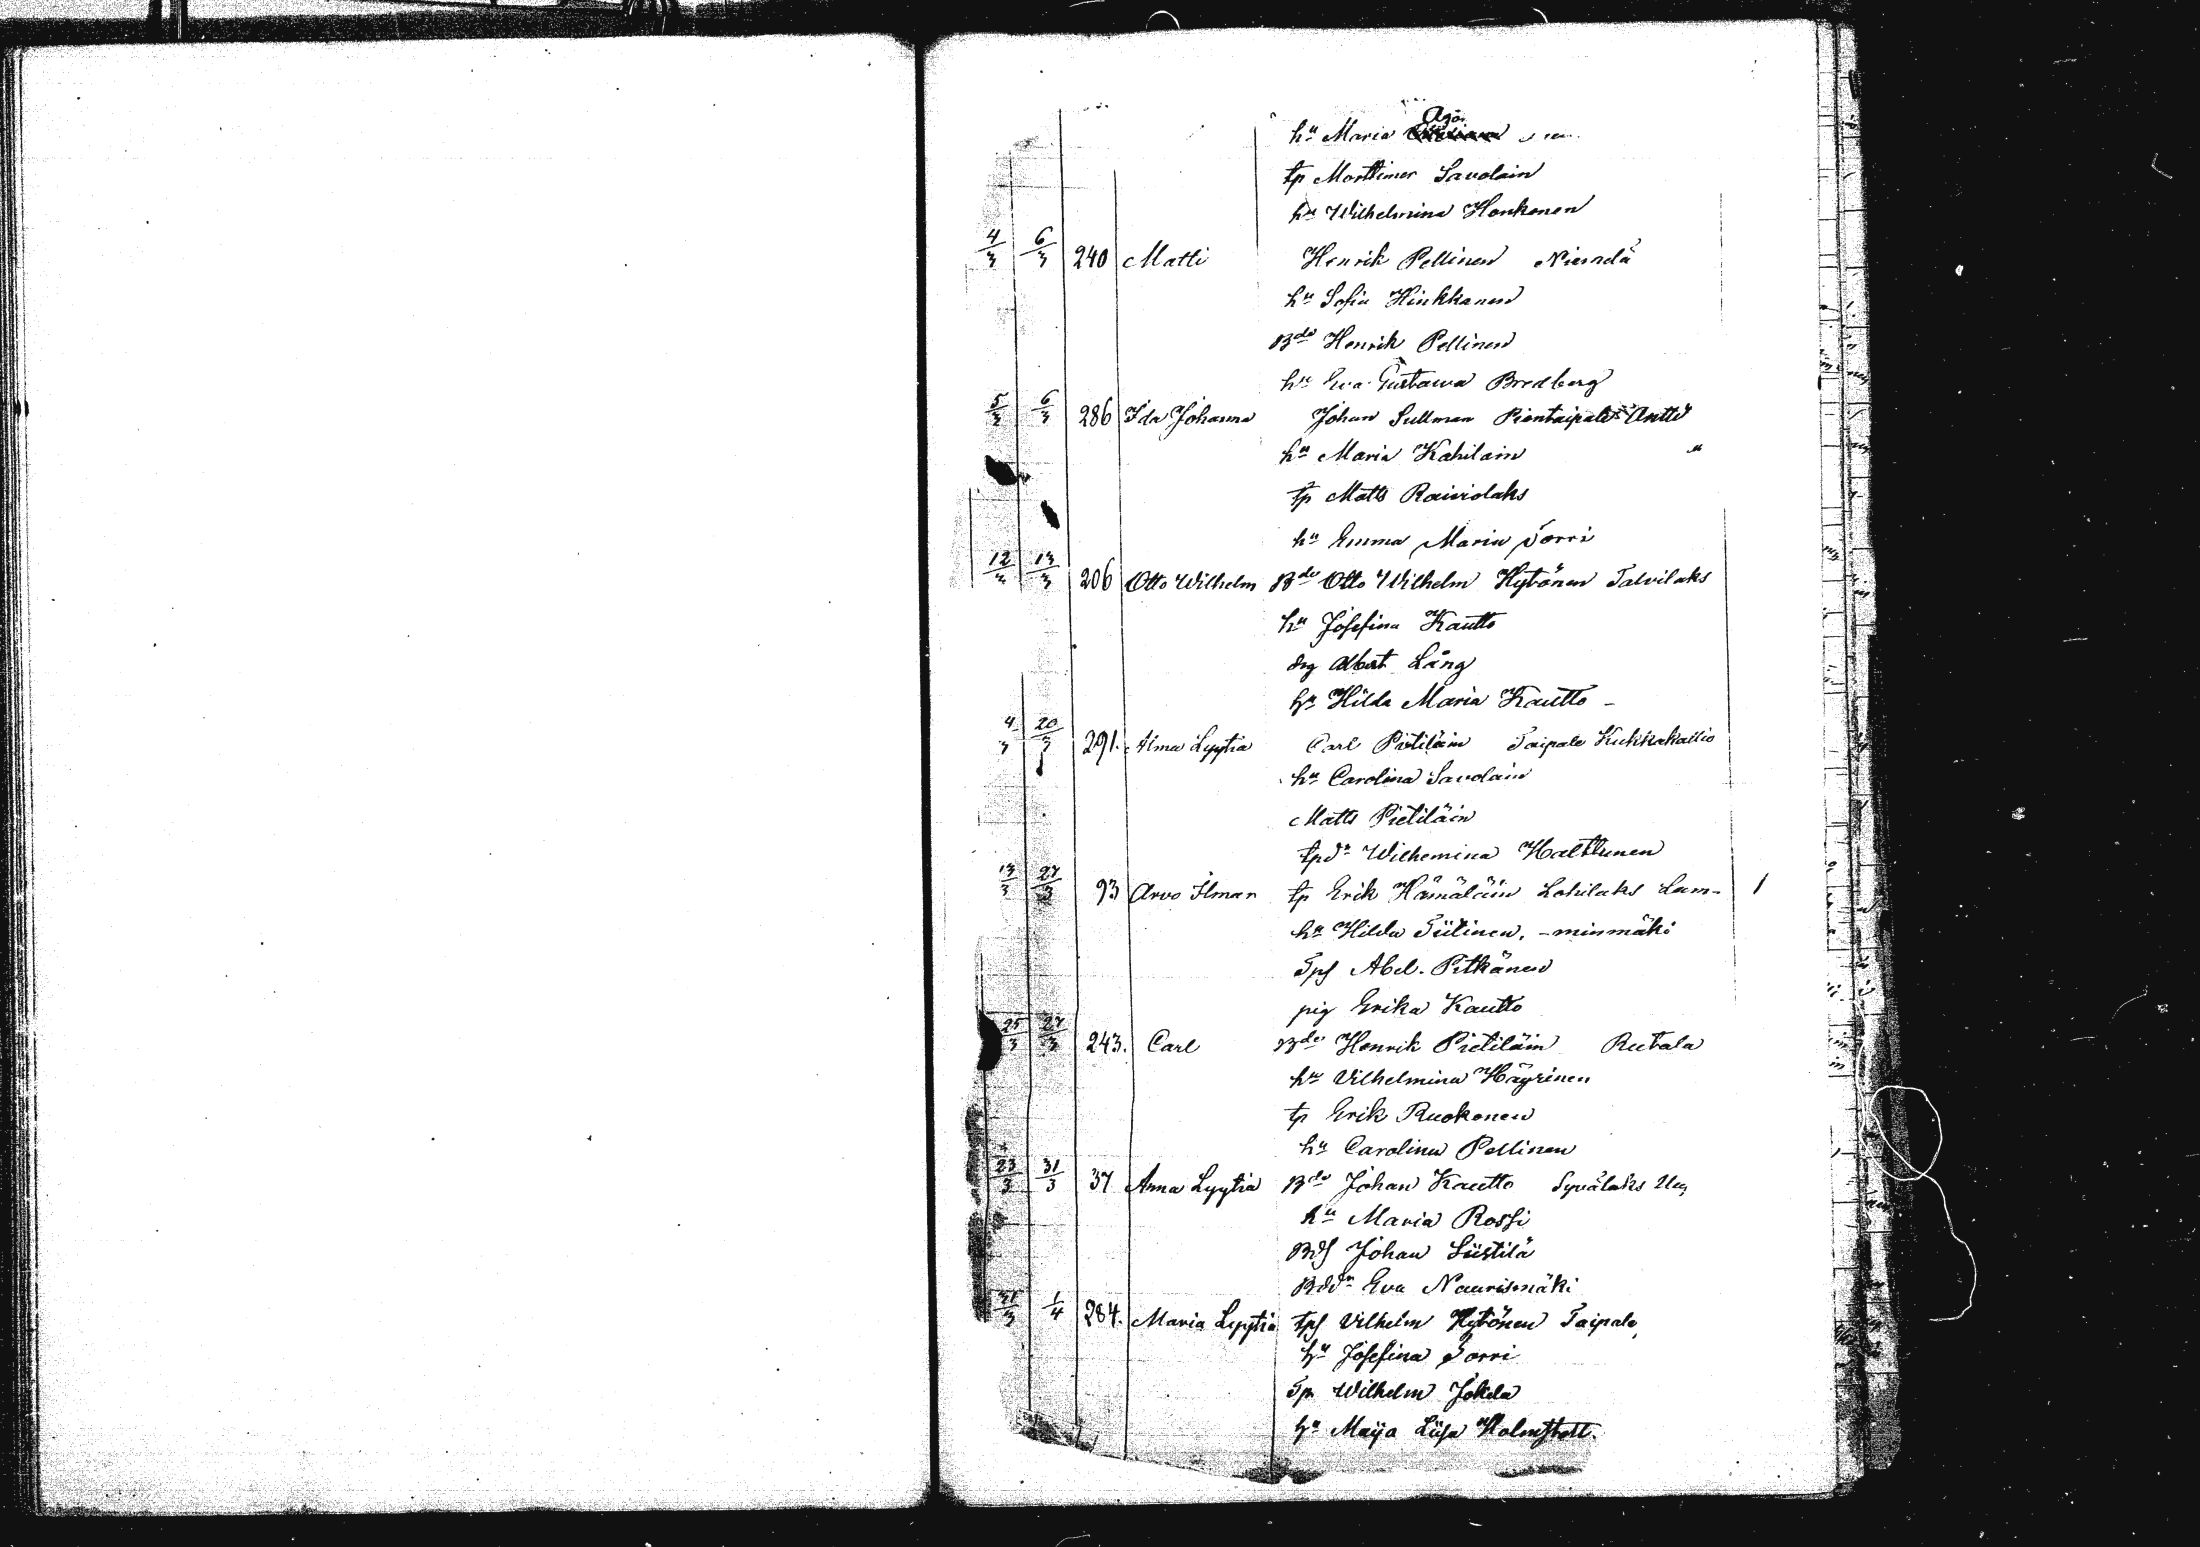 Agö
hu Maria
tp Morttimer Savolain
hu Wilhelmina Honkonen
4/3 6/3 240 Matti Henrik Pellinen Nisadä
hu Sofia Hinkkanen
Bde Henrik Pellinen
hu Eva Gustawa Bredberg
5/3 6/3 286 Ida Johanna Johan Sullman Pientaipale Antti
hu Maria Kahilain "
tp Matts Raiviolaks
hu Emma Maria Torri
12/3 13/3 206 Otto Wilhelm Bde Otto Wilhelm Hytönen Talvilaks
hu Josefina Kautto
drg Albert Lång
hu Hilda Maria Kautto -
4/3 20/3 291. Alma Lyytia Carl Pietiläin Taipale Kukkakallio
hu Carolina Savolain
Matts Pietiläin
tpdr Wilhemina Halttunen
13/3 27/3 93 Arvo Ilmar tp Erik Hämäläin Lahilaks Lum-
hu Hilda Tiitinen, -minmäki
Tps Abel. Pitkänen
pig Erika Kautto
25/3 27/3 243. Carl Bde Henrik Pietiläin Rutala
hu Vilhelmina Häyrinen
tp Erik Ruokonen
hu Carolina Pellinen
23/3 31/3 37 Anna Lyytia Bde Johan Kautto Syvälaks
hu Maria Rossi
Bds Johan Liistilä
Bddr Eva Naurismäki
31/3 1/4 284. Maria Lyytia tps Vilhelm Hytönen Taipale
hu Josefina Torri
Tp Wilhelm Jokela
hu Maija Liisa